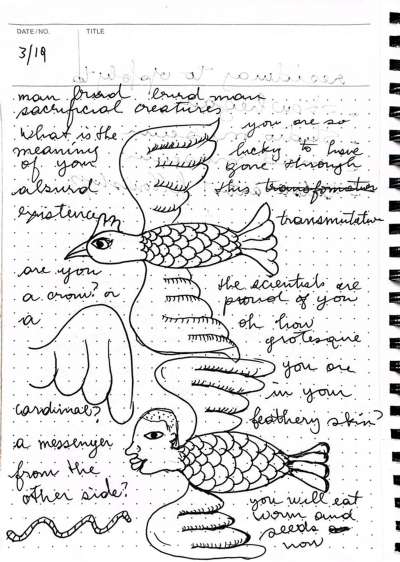 DATE/NO.
TITLE
3/19
man bird bird man
sacrificial creatures
What is the
meaning
of your
absurd
existence
are you
a crow? or
a
cardinal?
a messenger
from the
other side?
you are so
lucky to have
gone through
this transformation
transmutation
the scientists are
proud of you
oh how
grotesque
you are
in your
feathery skin?
you will eat
worm and
seeds
now